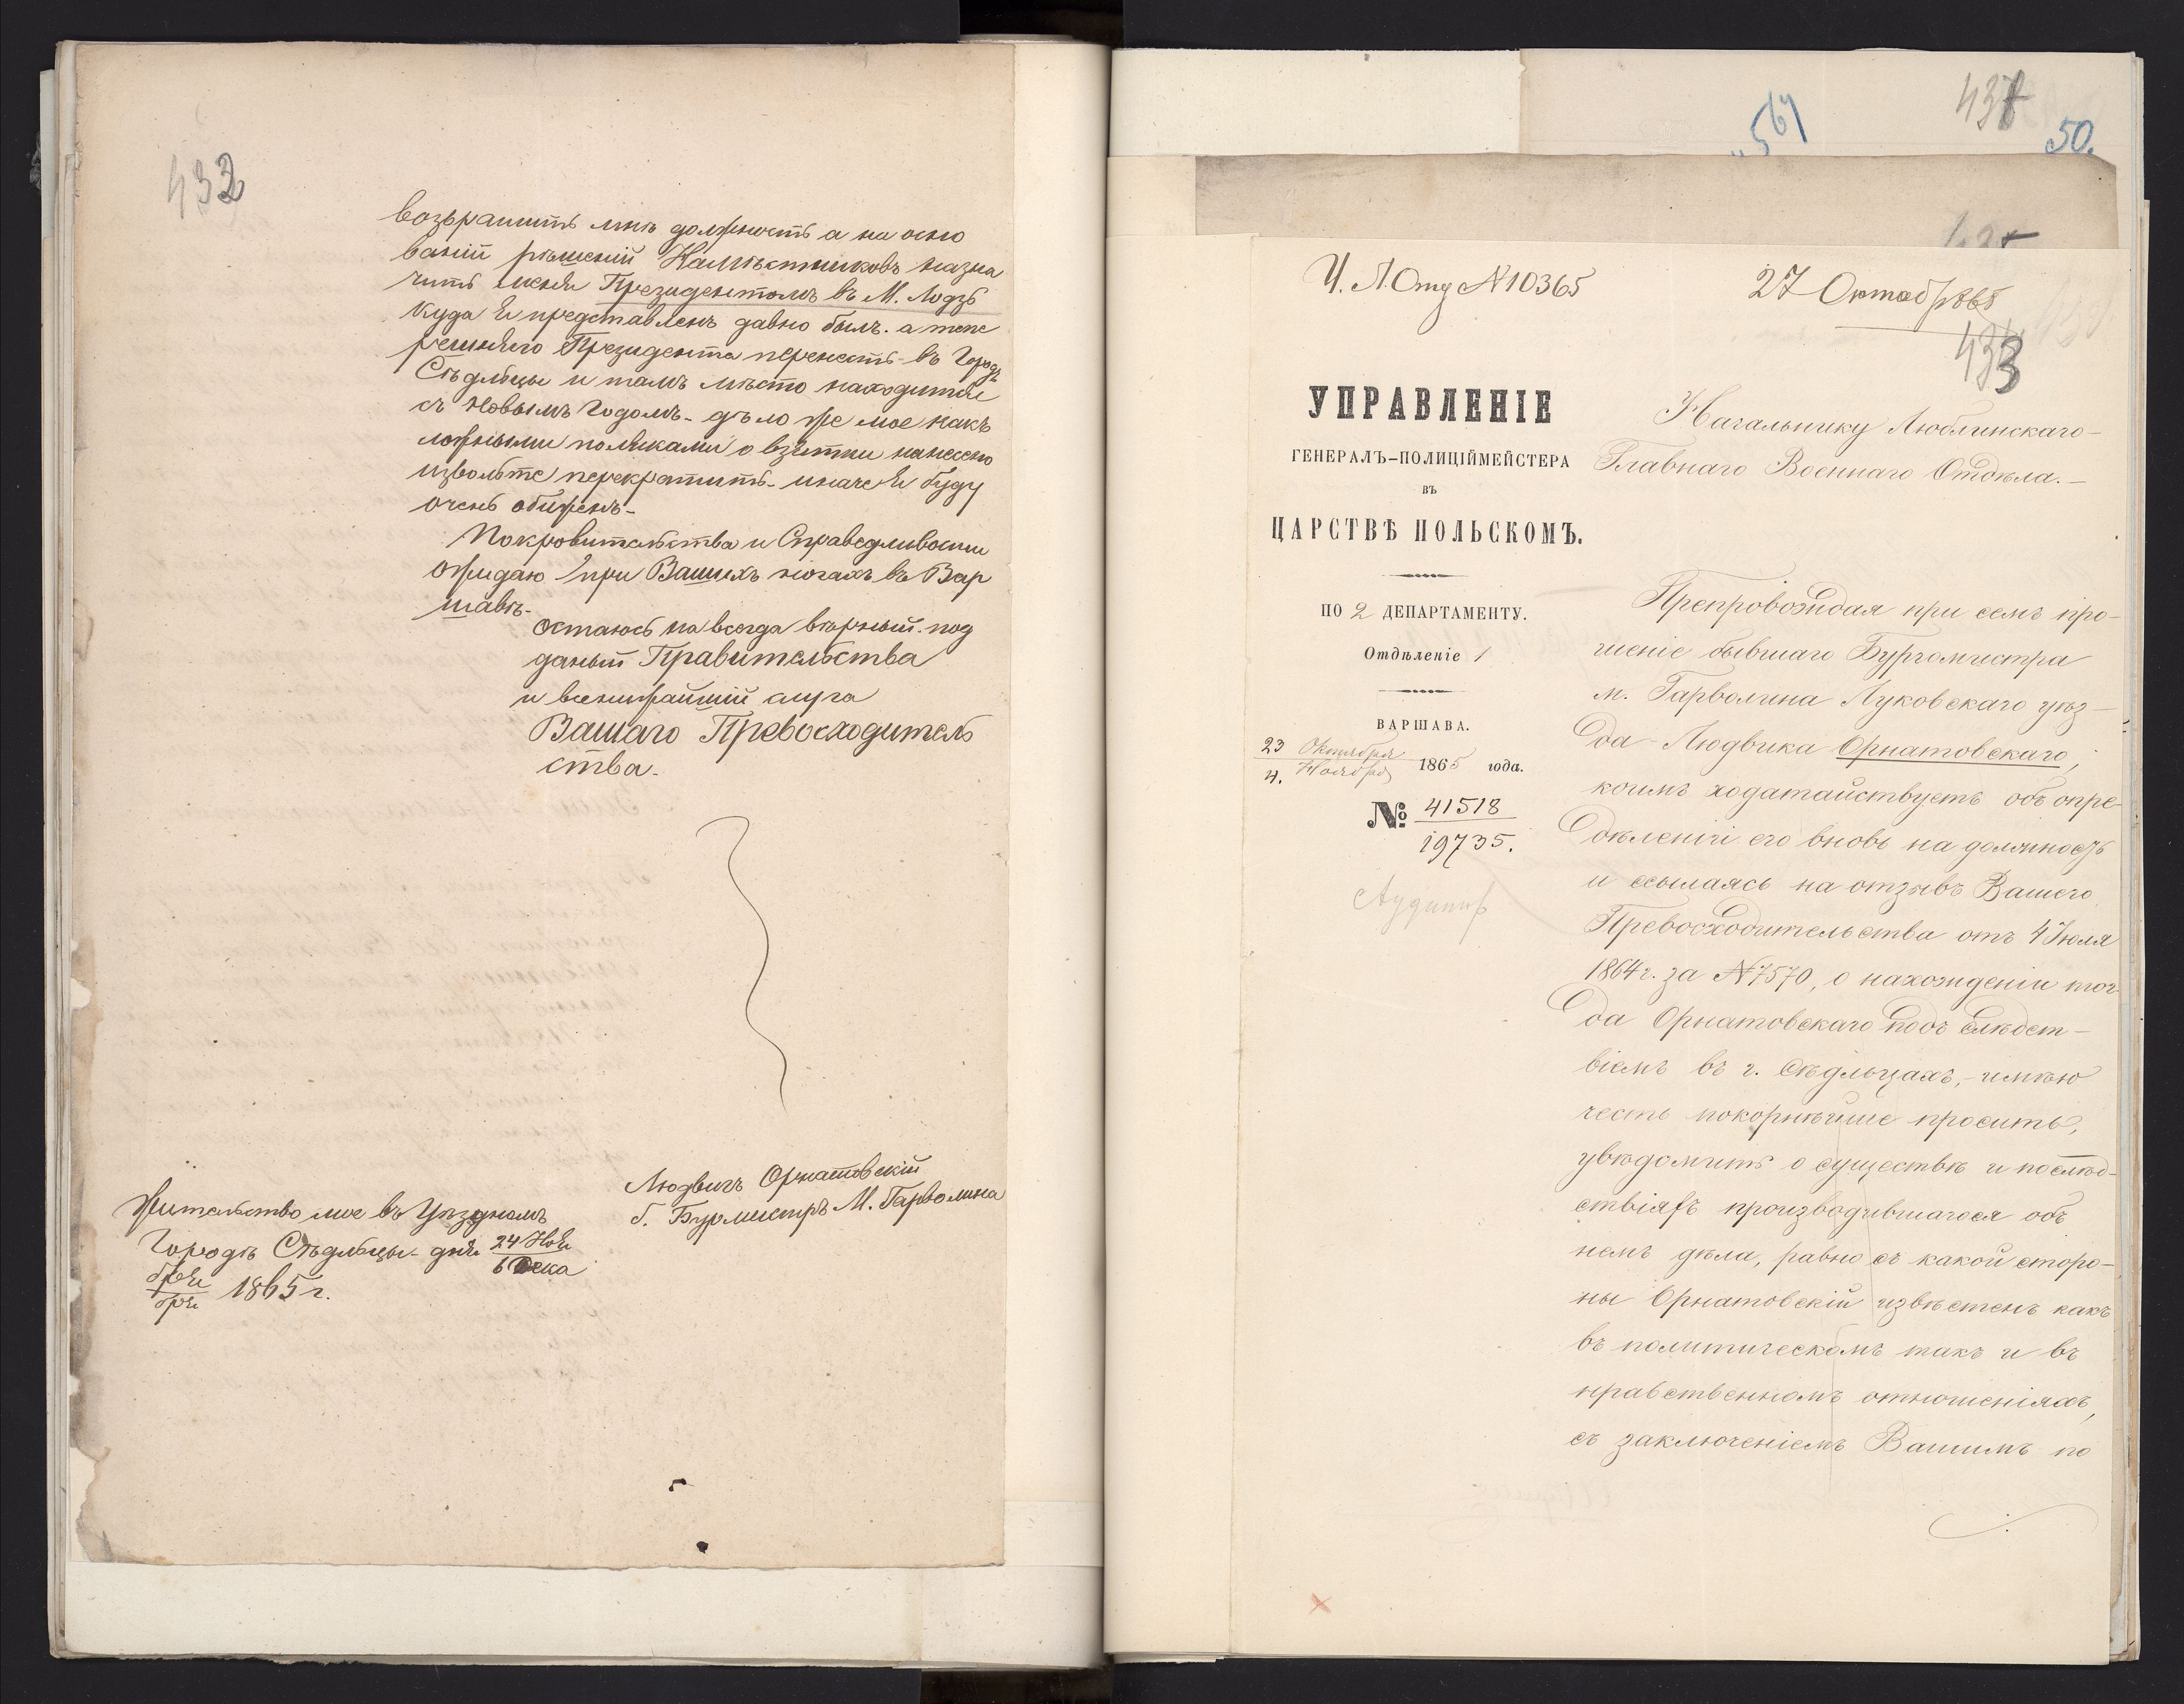 432
возвратить мнѣ должность а на осно
ваніи рѣшеній Намѣстниковъ назна
чить меня Президентомъ въ М. Лодзь
куда я представленъ давно былъ. а тепе
решняго Президента перенесть въ Городъ
Сѣдльцы и тамъ мѣсто находится
съ Новымъ Годомъ - дѣло же мое какъ
ложными поляками о взятки нанесено
извольте перекратить - иначе я буду
очень обиженъ -
Покровительства и Справедливости
ожидаю при Вашихъ ногахъ въ Вар
шавѣ -
остаюсь на всегда вѣрный под
даный Правительства
и всенижайшій слуга
Вашаго Превосходитель
ства.
Людвигъ Орнатовскій
б. Бурмистръ М. Гарволина
Жительство мое въ Уѣздномъ
Городѣ Сѣдльцы - дня 24 Ноя / 6 Дека
бря / бря 1865 г.
567
437
50.
Ч. Л. Отд N 10365
27 Октября 1865
433
УПРАВЛЕНІЕ
ГЕНЕРАЛЪ-ПОЛИЦІЙМЕЙСТЕРА
ВЪ
ЦАРСТВѢ ПОЛЬСКОМЪ.
ПО 2 ДЕПАРТАМЕНТУ.
Отдѣленіе 1
ВАРШАВА.
23 Октября / 4. Ноября 1865 года.
№ 41518 / 19735.
Начальнику Люблинскаго
Главнаго Военнаго Отдѣла. -
Препровождая при семъ про-
шеніе бывшаго Бургомистра
м. Гарволина Луковскаго уѣз-
да Людвика Орнатовскаго,
коимъ ходатайствуетъ объ опре-
дѣленіи его вновь на должность
и ссылаясь на отзывъ Вашего
Превосходительства отъ 4 Іюля
1864 г. за N 7570, о нахожденіи тог-
да Орнатовскаго подъ слѣдст-
віемъ въ г. Сѣдльцахъ, - имѣю
честь покорнѣйше просить,
увѣдомить о существѣ и послѣд-
ствіяхъ производившагося объ
немъ дѣла, равно съ какой сторо-
ны Орнатовскій извѣстенъ какъ
въ политическомъ такъ и въ
нравственномъ отношеніяхъ,
съ заключеніемъ Вашимъ по